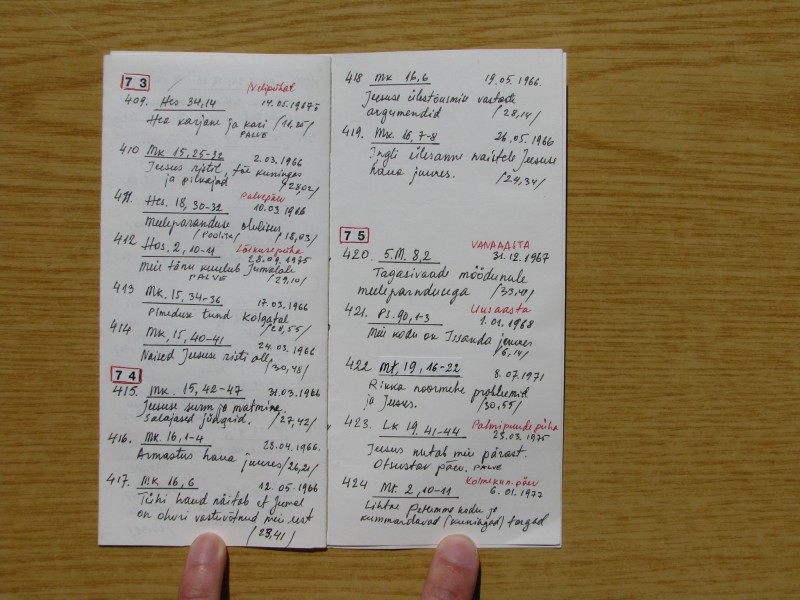 73
Nelipühad
409. Hes 34,14 14.05.1967
Hea karjane ja kari /11,25/
PALVE
410 Mk 15,25-32 2.03.1966
Jeesus ristil, kuningas
ja pilkajad /28,02/
411. Hes. 18,30-32 Palvepäev
10.03.1966
Meeleparanduse olulisus
/Poolik/ /18,03/
412 Hos. 2,10-11 Lõikusepüha
28.09.1975
Meie tänu kuulub Jumalale
PALVE /29,10/
413 Mk. 15,34-36 17.03.1966
Pimeduse tund Kolgatal
/28,55/
414 Mk, 15,40-41 24.03.1966
Naised Jeesuse risti all,
/30,48/
74
415. Mk. 15,42-47 31.03.1966
Jeesuse surm ja matmine.
Salajased jüngrid. /27,42/
416. Mk. 16,1-4 28.04.1966.
Armastus haua juures /26,21/
417. Mk 16,6 12.05.1966
Tühi haud näitab et Jumal
on ohvri vastuvõtnud meie eest
/29,41/
418 Mk 16,6 19.05.1966.
Jeesuse ülestõusmise vastaste
argumendid /28,14/
419. Mk 16,7-8 26.05.1966
Ingli ülesanne naistele Jeesuse
haua juures. /24,34/
75
VANAAASTA
420. 5.M. 8,2 31.12.1967
Tagasivaade möödunule
meeleparandusega /33,41/
Uusaasta
421. Ps. 90,1-3 1.01.1968
Meie kodu on Issanda juures
/6,14/
422 Mt, 19, 16-22 8.07.1971
Rikka noormehe probleemid
ja Jeesus. /30,55/
Palmipuudepüha
423. Lk 19. 41-44 23.03.1975
Jeesus nutab meie pärast.
Otsustav päev. PALVE
Kolmekun.-päev
424 Mt. 2,10-11 6.01.1977
Lihtne Petlemma kodu ja
kummardavad (kuningad) targad